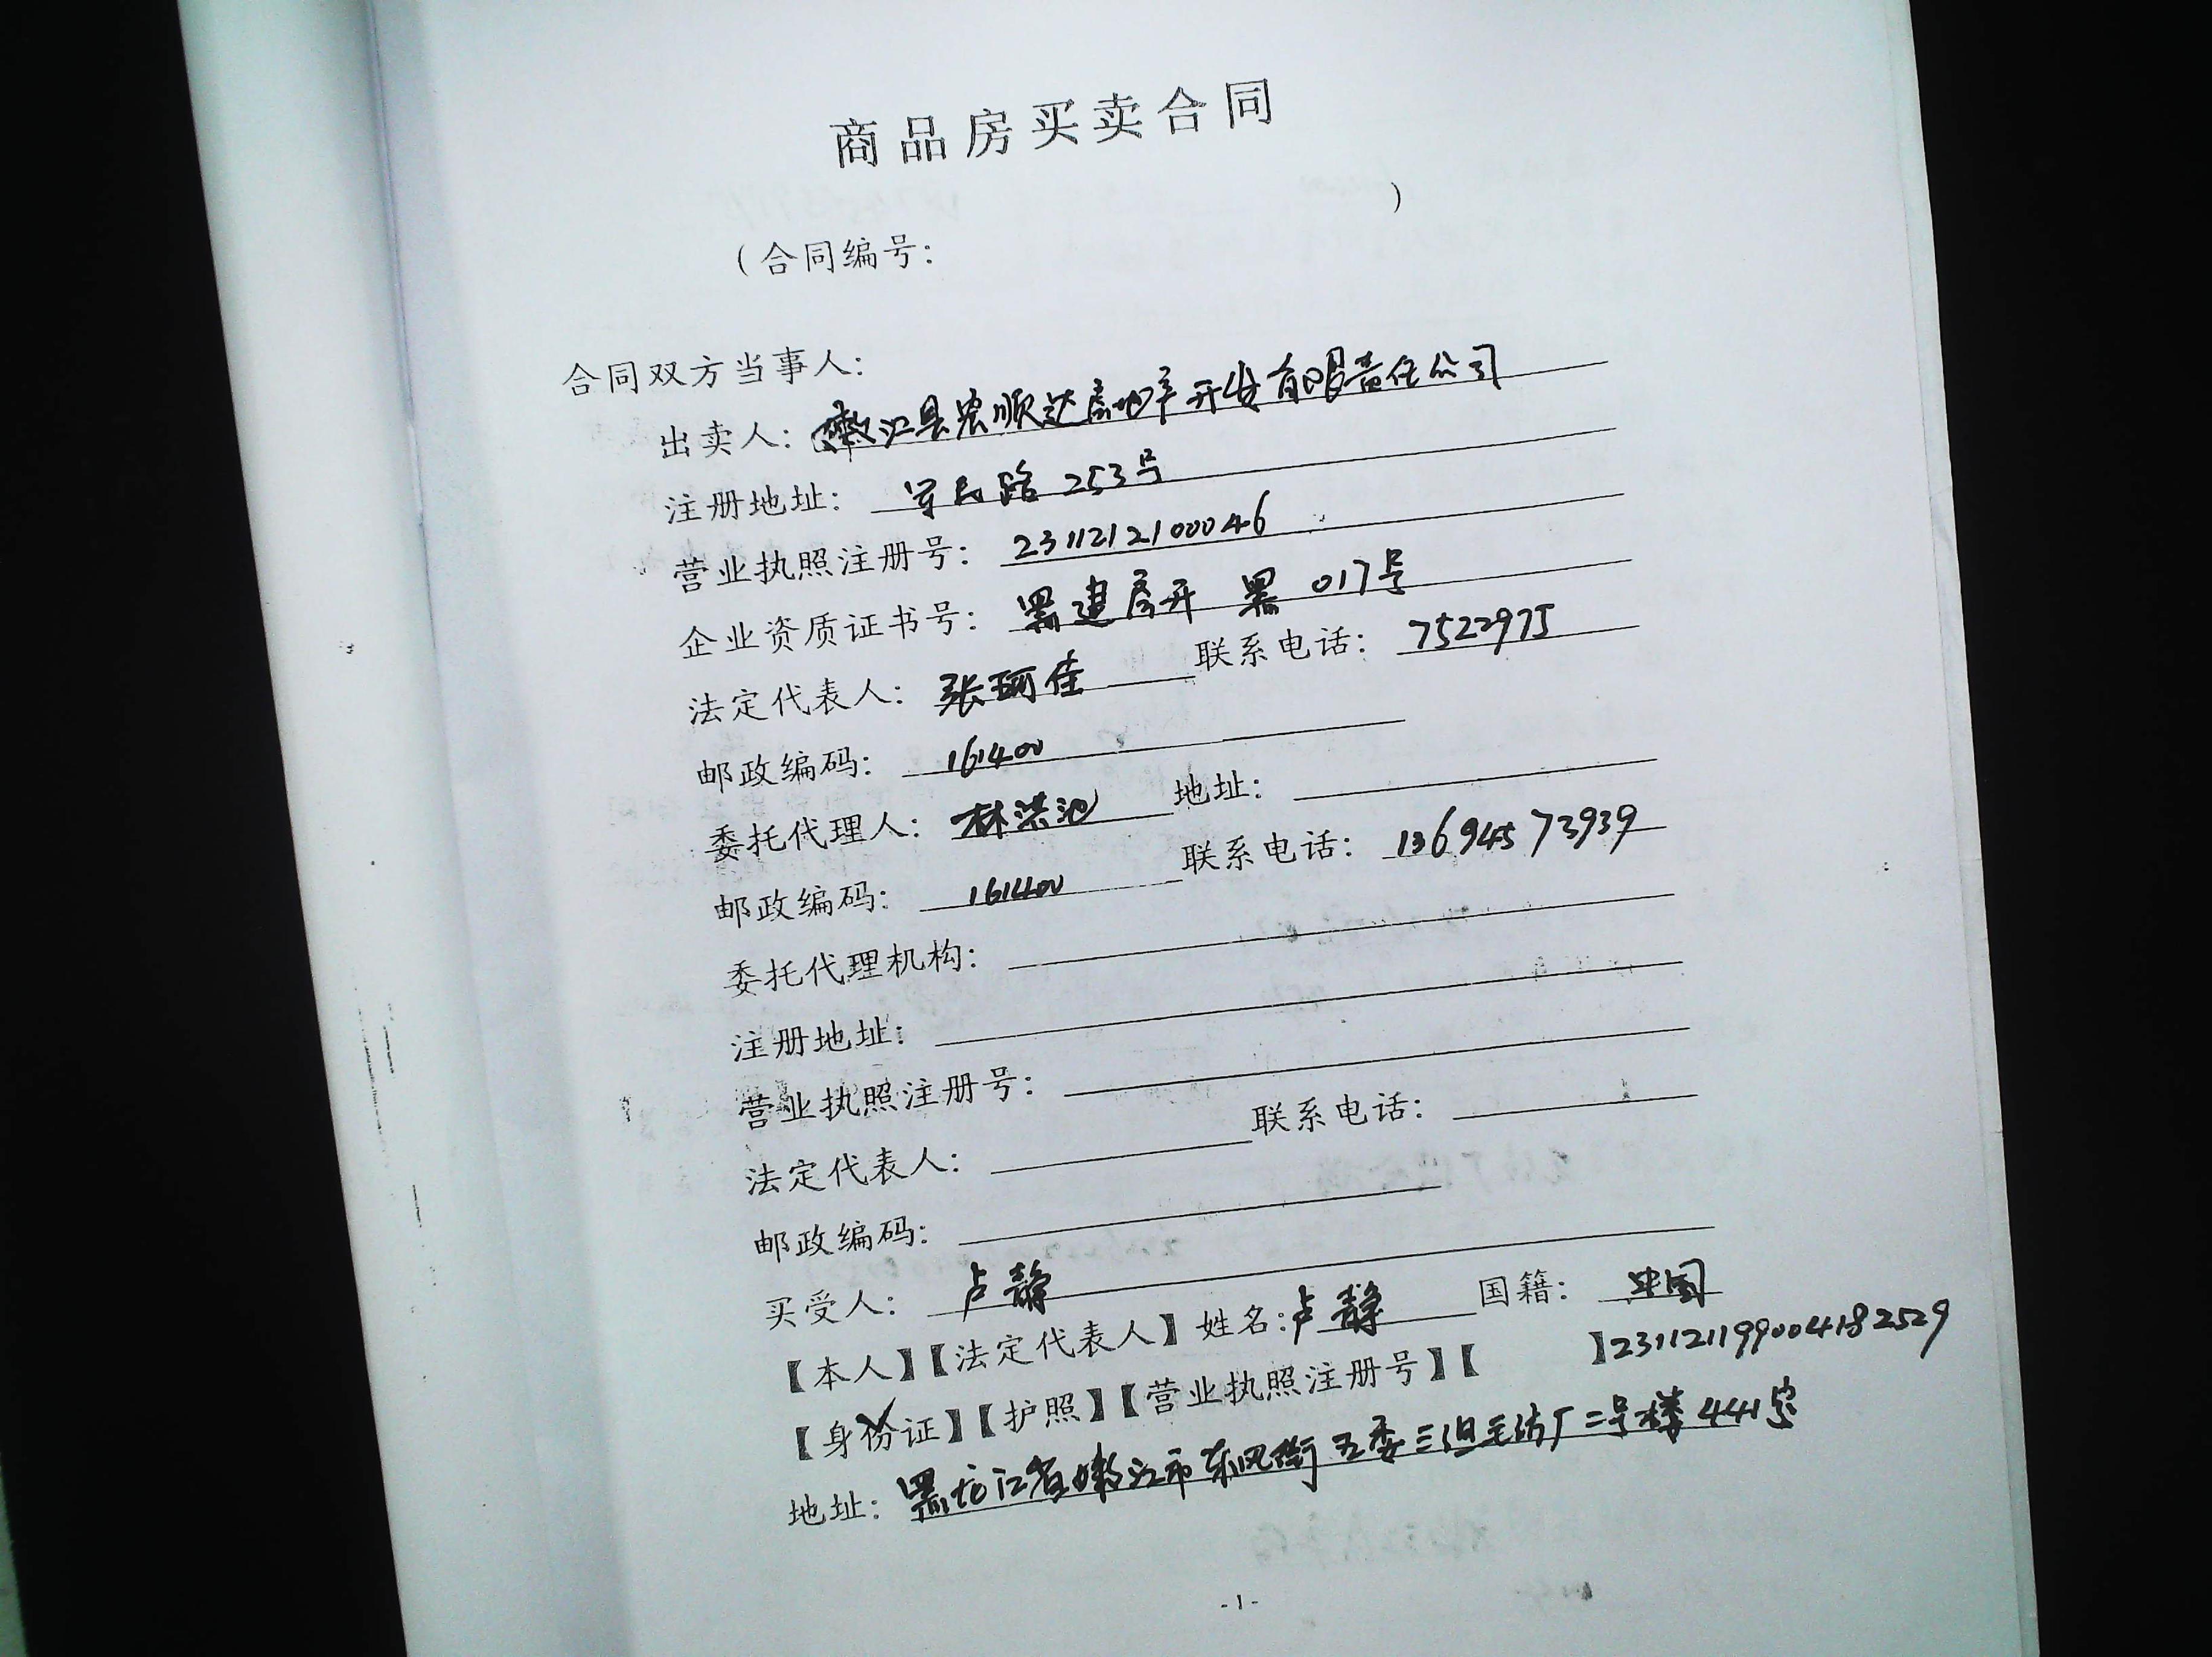 商品房买卖合同
（合同编号： ）
合同双方当事人：
出卖人：嫩江县宏顺达房地产开发有限责任公司
注册地址：军民路253号
营业执照注册号：23112121000046
企业资质证书号：黑建房开 黑 017号
法定代表人：张珂佳 联系电话：7522975
邮政编码：161400
委托代理人：林洪池 地址：
邮政编码：161400 联系电话：13694573939
委托代理机构：
注册地址：
营业执照注册号：
法定代表人： 联系电话：
邮政编码：
买受人：卢静
【本人】【法定代表人】姓名：卢静 国籍：中国
【身份证】【护照】【营业执照注册号】【 】231121199004182529
地址：黑龙江省嫩江市东风街五委三组毛纺厂二号楼441室
-1-